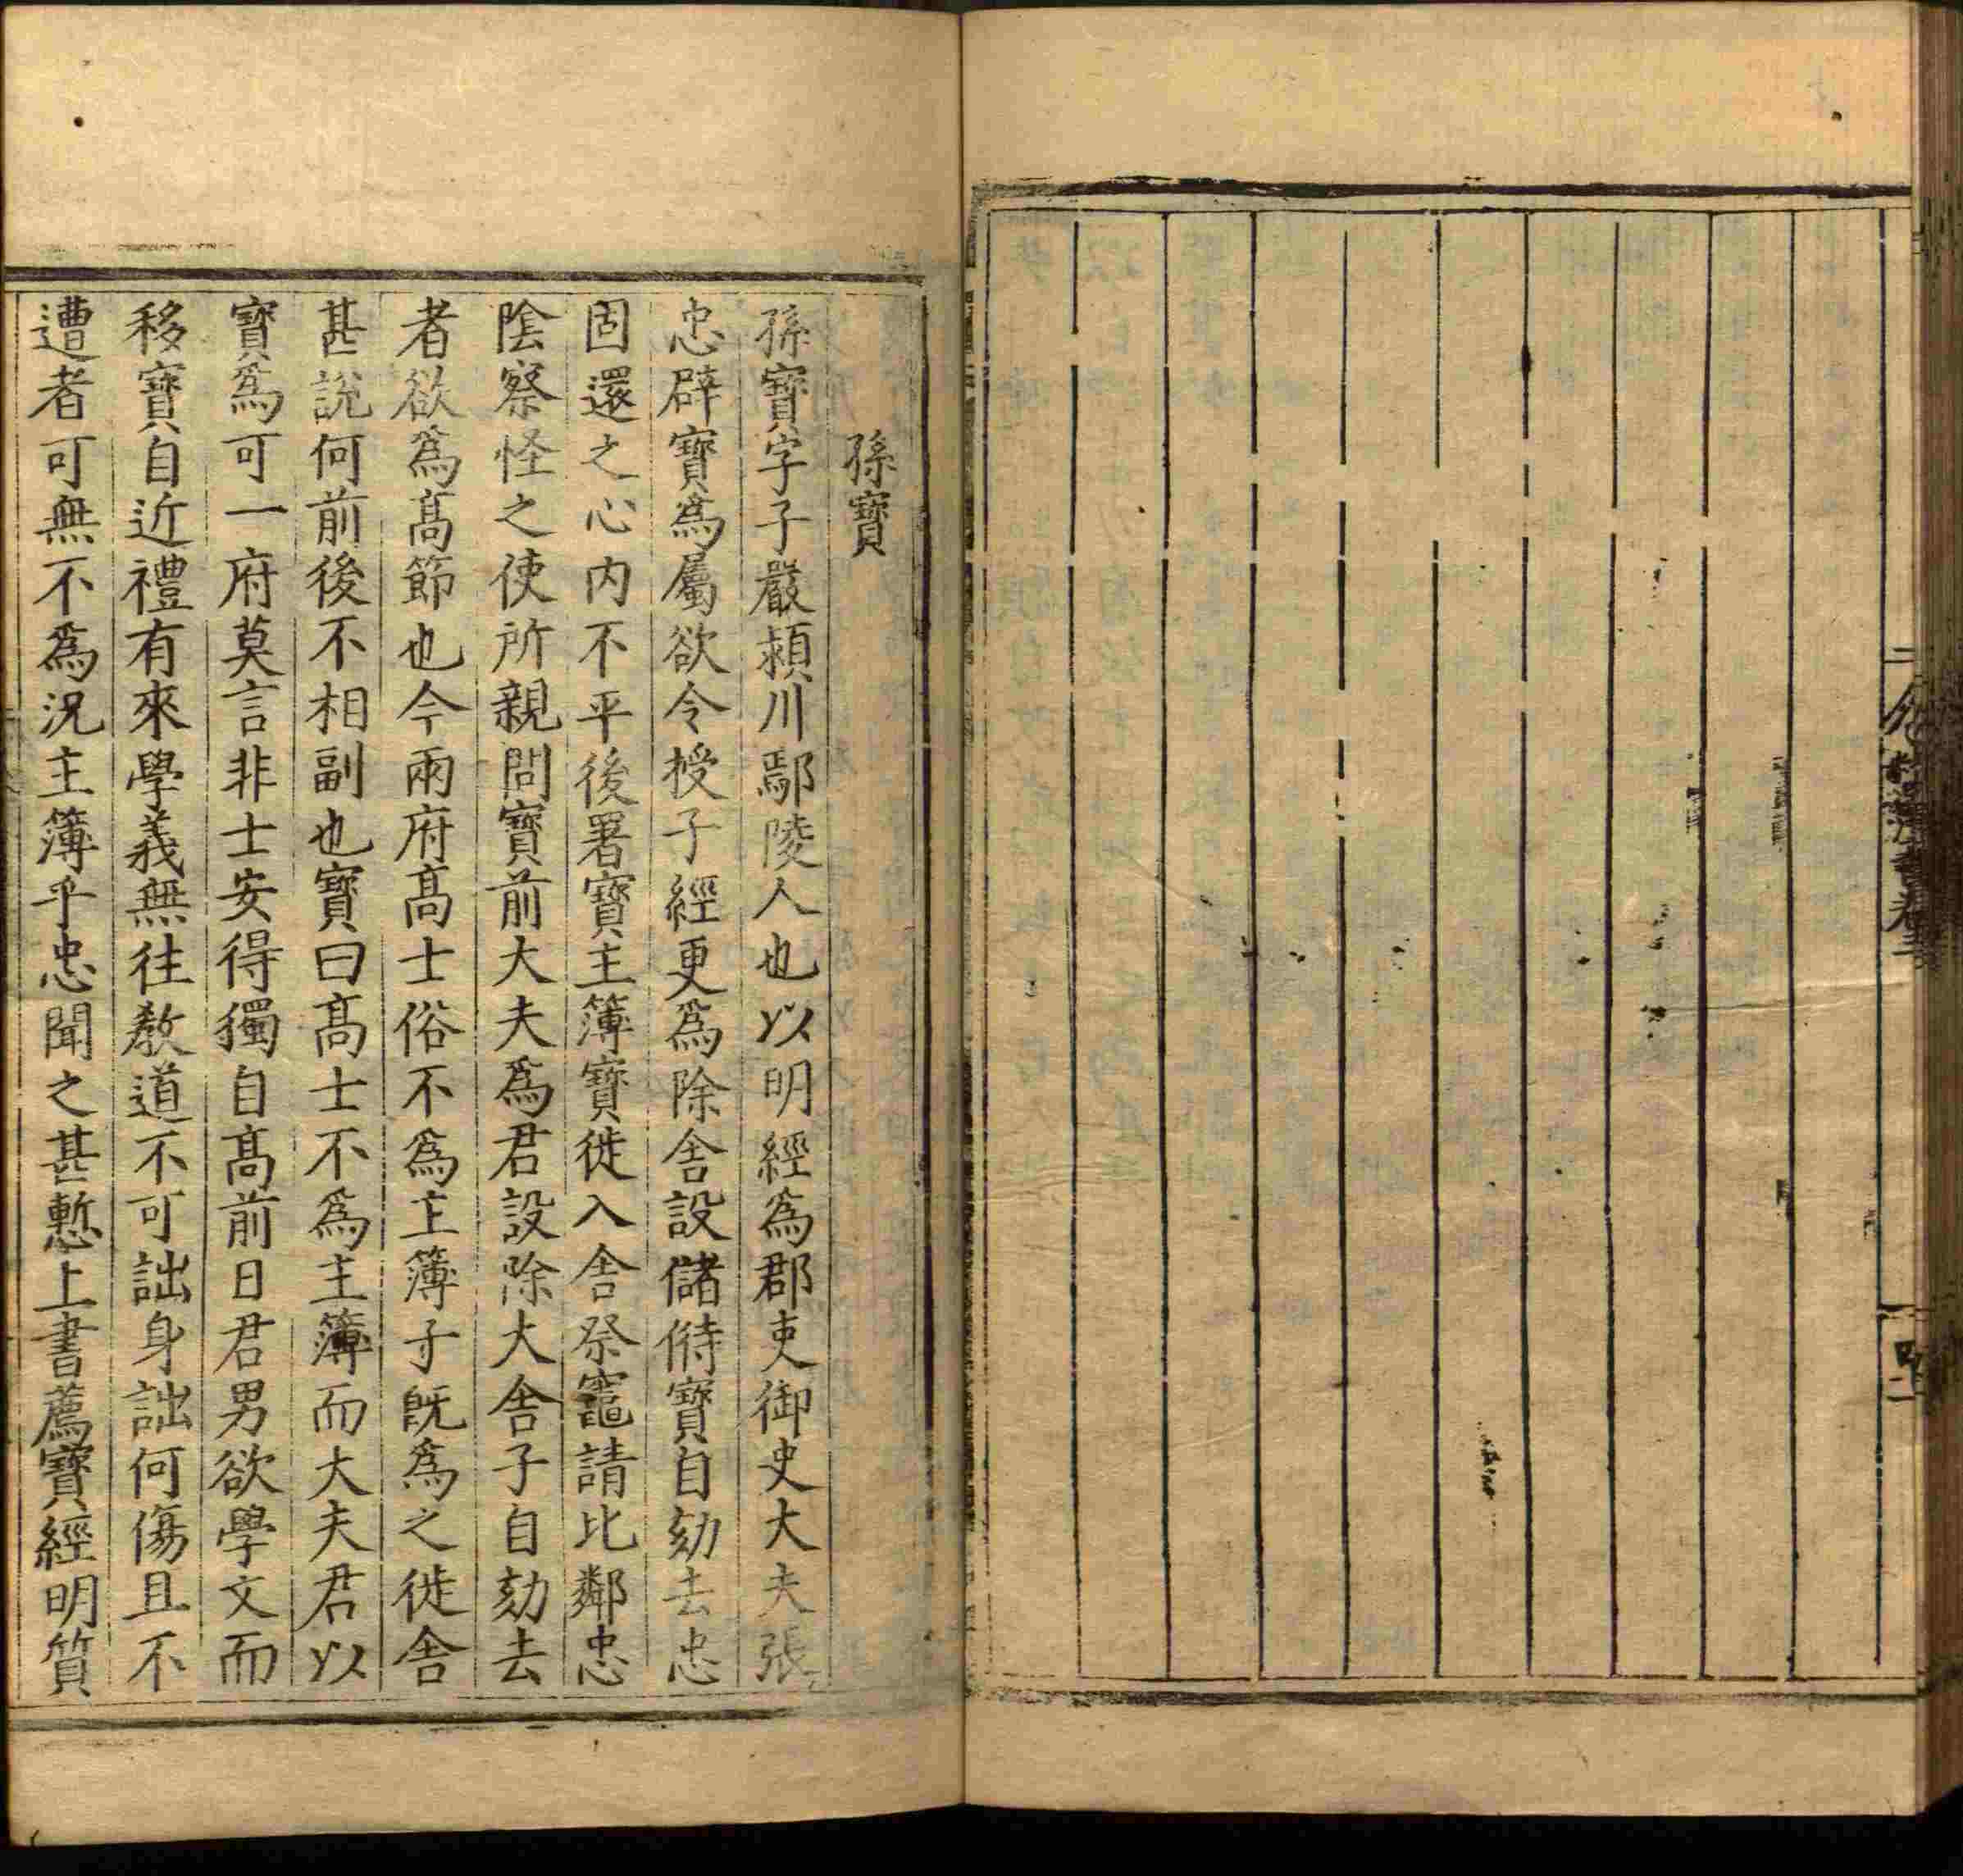 孫寶
孫寶字子嚴潁川鄢陵人也以明經為郡吏御史大夫張
忠辟寶為屬欲令授子經更為除舍設儲偫寶自劾去忠
固還之心内不平後署寶主簿寶徙入舍祭竈請比鄰忠
陰察怪之使所親問寶前大夫為君設除大舍子自劾去
者欲為髙節也今兩府髙士俗不為主簿子既為之徙舍
甚說何前後不相副也寶曰髙士不為主簿而大夫君以
寶為可一府莫言非士安得獨自髙前日君男欲學文而
移寶自近禮有來學義無往教道不可詘身詘何傷且不
遭者可無不為況主簿乎忠聞之甚慙上書薦寶經明質